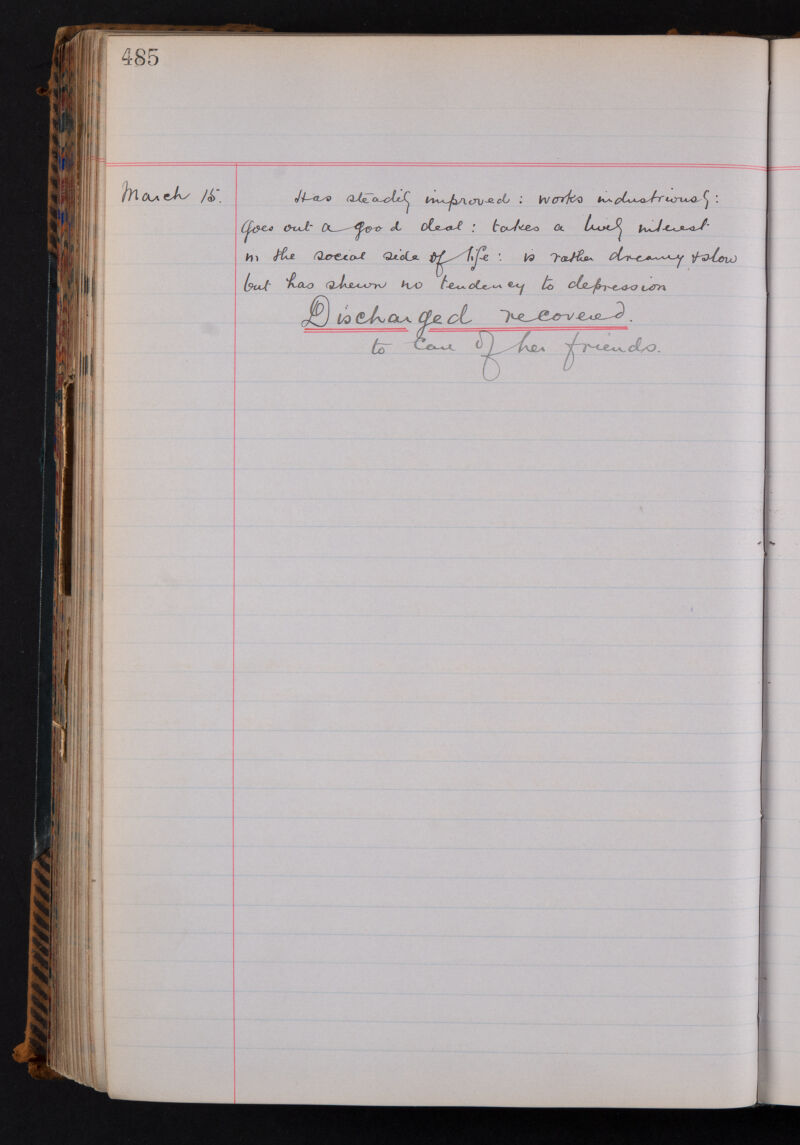 485
March 15. Has steadily improved : works industriously :
Goes out a good deal : takes a lively interest
in the social side of life : is rather dreamy & slow
but has shewn no tendency to depression
Discharged recovered.
to Care of her friends.